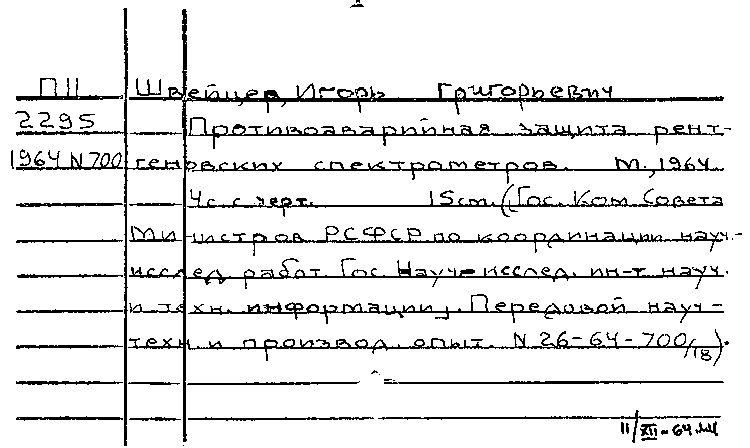 ПII Швейцер, Игорь Григорьевич
2295 Противоаварийная защита рент-
1964 N 700 геновских спектрометров. М., 1964.
4с. с черт. 15см. (Гос. Ком. Совета
Министров РСФСР по координации науч.-
исслед. работ. Гос. Науч-исслед. ин-т науч.
и техн. информации). Передовой науч-
техн. и производ. опыт. N 26-64-700/18).
II/XII-64